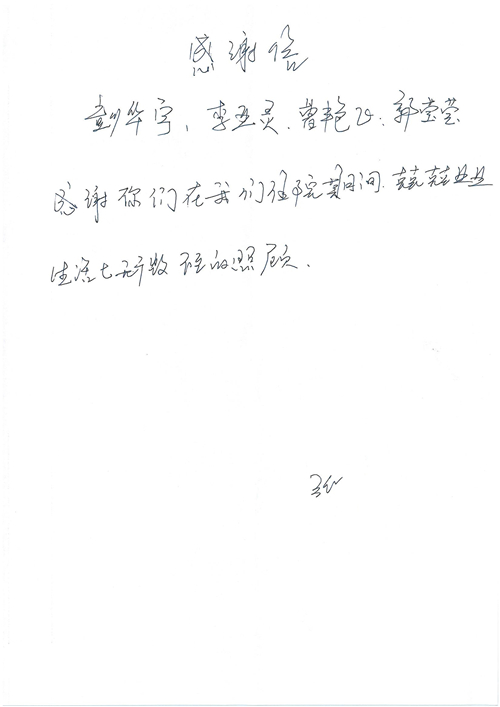 感谢信
彭华宇、李亚灵、曾艳飞、郭莹莹
感谢你们在我们住院期间、兢兢业业
生活上无数的照顾、